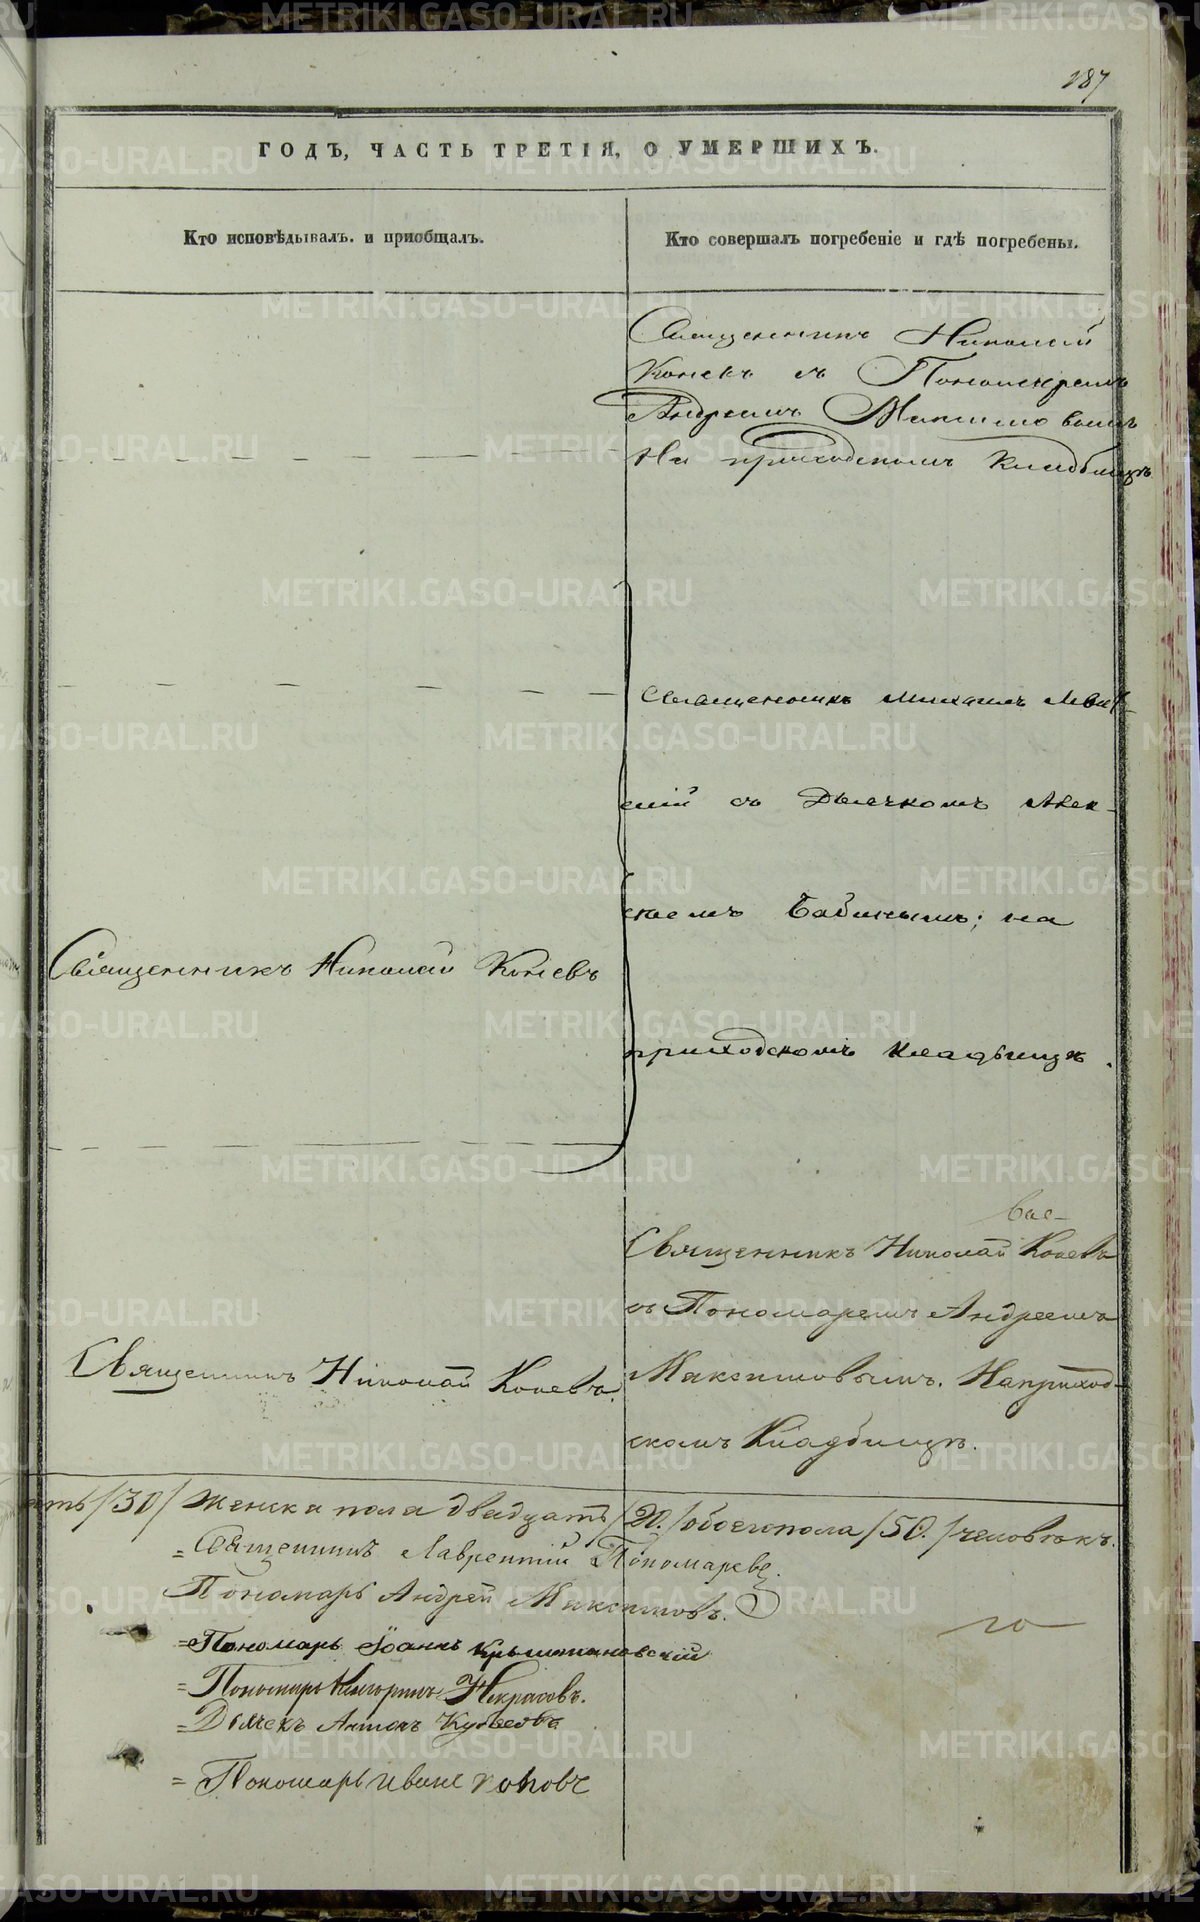 187
ГОДЪ, ЧАСТЬ ТРЕТІЯ, О УМЕРШИХЪ.
Кто исповѣдывалъ и приобщалъ.
Кто совершалъ погребеніе и гдѣ погребены.
Священникъ Николай
Коневъ съ Пономаремъ
Андреемъ Максимовымъ
На приходскомъ кладбищѣ
Священникъ Михаилъ
съ Дьячкомъ Алек-
сѣемъ Бабинымъ; на
Священникъ Николай Коневъ
приходскомъ кладбищѣ.
Священникъ Николай Коневъ
съ Пономаремъ Андреемъ
Священникъ Николай Коневъ.
Максимовымъ. На приход-
скомъ Кладбищѣ.
/30/ женска пола двадцать /20./ обоего пола /50./ человѣкъ.
= Священникъ Лаврентій Пономаревъ.
Пономарь Андрей Максимовъ.
=Пономарь Іоаннъ Крыжановскій
=Пономарь Некрасовъ.
=Дьячекъ Антонъ
= Пономарь Иванъ Поповъ
METRIKI.GASO-URAL.RU